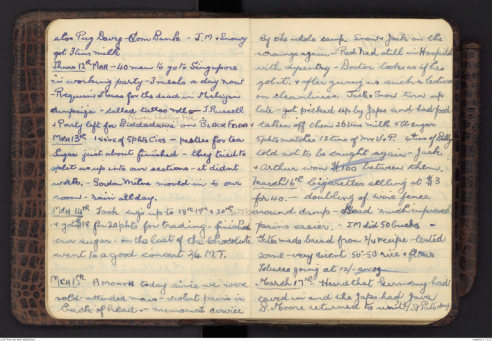 also Pug Davy - Tom Bank - J.M. & Snowy
got 3 tins milk
Thurs 12th MAR - 40 men to go to Singapore
in working party - 3 meals a day now
Requiem Mass for the dead in Malayan
campaign - called - J. Russell
& Party left for Biddadarri on
River Valley Rd
MCH 13th issue of 5 pkts CIGS - parties for tea
Sugar just about finished - they tried to
split us up into our sections - it didnt
work. - Gordon Milne moved in to our
room - rain all day.
MCH 14th Took cigs up to 18th 19th & 20th
& got $14 for 20 pkts for trading - finished
our sugar - on the last of the chocolate
went to a good concert 2/6 M.T.
MCH 15th A month today since we were
sold - attended mass - violent pains in
back of head - memorial service
by the whole camp. Snow & Jack on the
again - Red Ned still in Hospital
with dysentry - Doctor looks as if he's
got it, & after giving us such a lecture
on cleanliness. Jack & Snow turn up
late - got picked up by Japs and had food
& taken off them 26 tins milk
5 pkts matches 13 tins of M & V.
told not to be caught again - Jack
& Arthur won $100 between them.
March 16th Cigarettes selling at $3
for 40. - doubling of wire fence
around dump - Head much improved
pains easier. - J.M did 50 bucks -
made bread from recipe - tasted
some - very decent 50-50 rice & flour.
Tobacco going at 12/-
March 17th - Heard that Germany had
caved in and the Japs had Java
D. Moore returned to unit. St Pats day